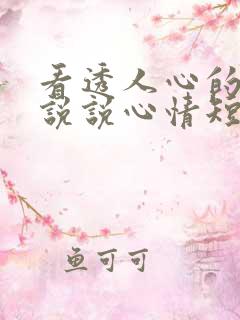 看透人心的
说说心情短
鱼可可